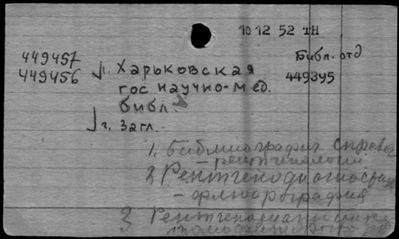 10 12 52 ТН
Библ. отд
449457
449456
449395
1. Харьковская
гос научно-мед.
библ.
г. Загл.
1. Библиография справоч
- рентгенологии
2 Рентгенодиагностика
- флюорография
3 Рентгенодиагностика